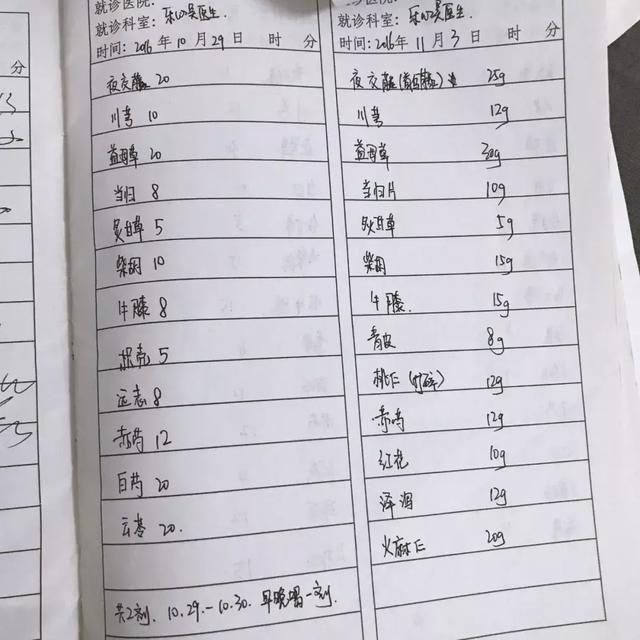 分
就诊医院:
就诊科室: 吴医生.
时间: 2016 年 10 月 29 日 时 分
夜交藤 20
川芎 10
益母草 20
当归 8
炙甘草 5
柴胡 10
牛膝 8
枳壳 5
远志 8
赤芍 12
白芍 20
云苓 20.
共2剂. 10.29.-10.30. 早晚喝一剂.
就诊科室: 吴医生.
时间: 2016 年 11 月 3 日 时 分
夜交藤(首乌藤) 25g
川芎 12g
益母草 30g
当归片 10g
炙甘草 5g
柴胡 15g
牛膝. 15g
青皮 8g
桃仁 12g
赤芍 12g
红花 10g
泽泻 12g
火麻仁 20g